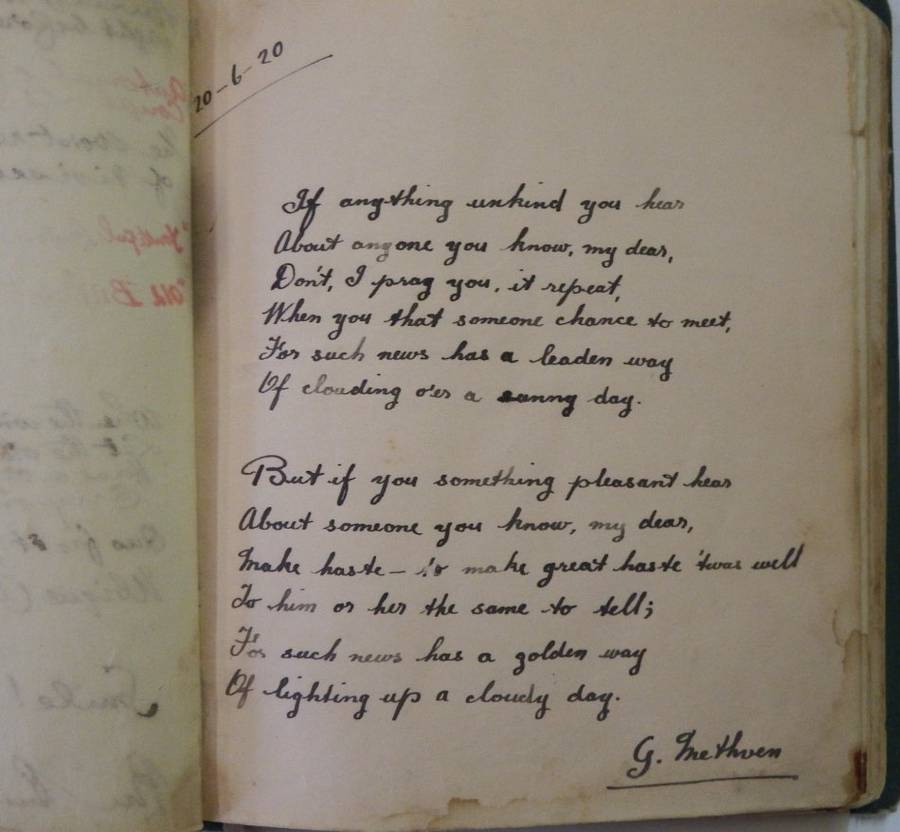 20-6-20
If anything unkind you hear
About anyone you know, my dear,
Don't, I pray you, it repeat,
When you that someone chance to meet,
For such news has a leaden way
Of clouding o'er a sunny day.
But if you something pleasant hear
About someone you know, my dear,
Make haste – to make great haste 'twas well
To him or her the same to tell;
For such news has a golden way
Of lighting up a cloudy day.
G. Methven